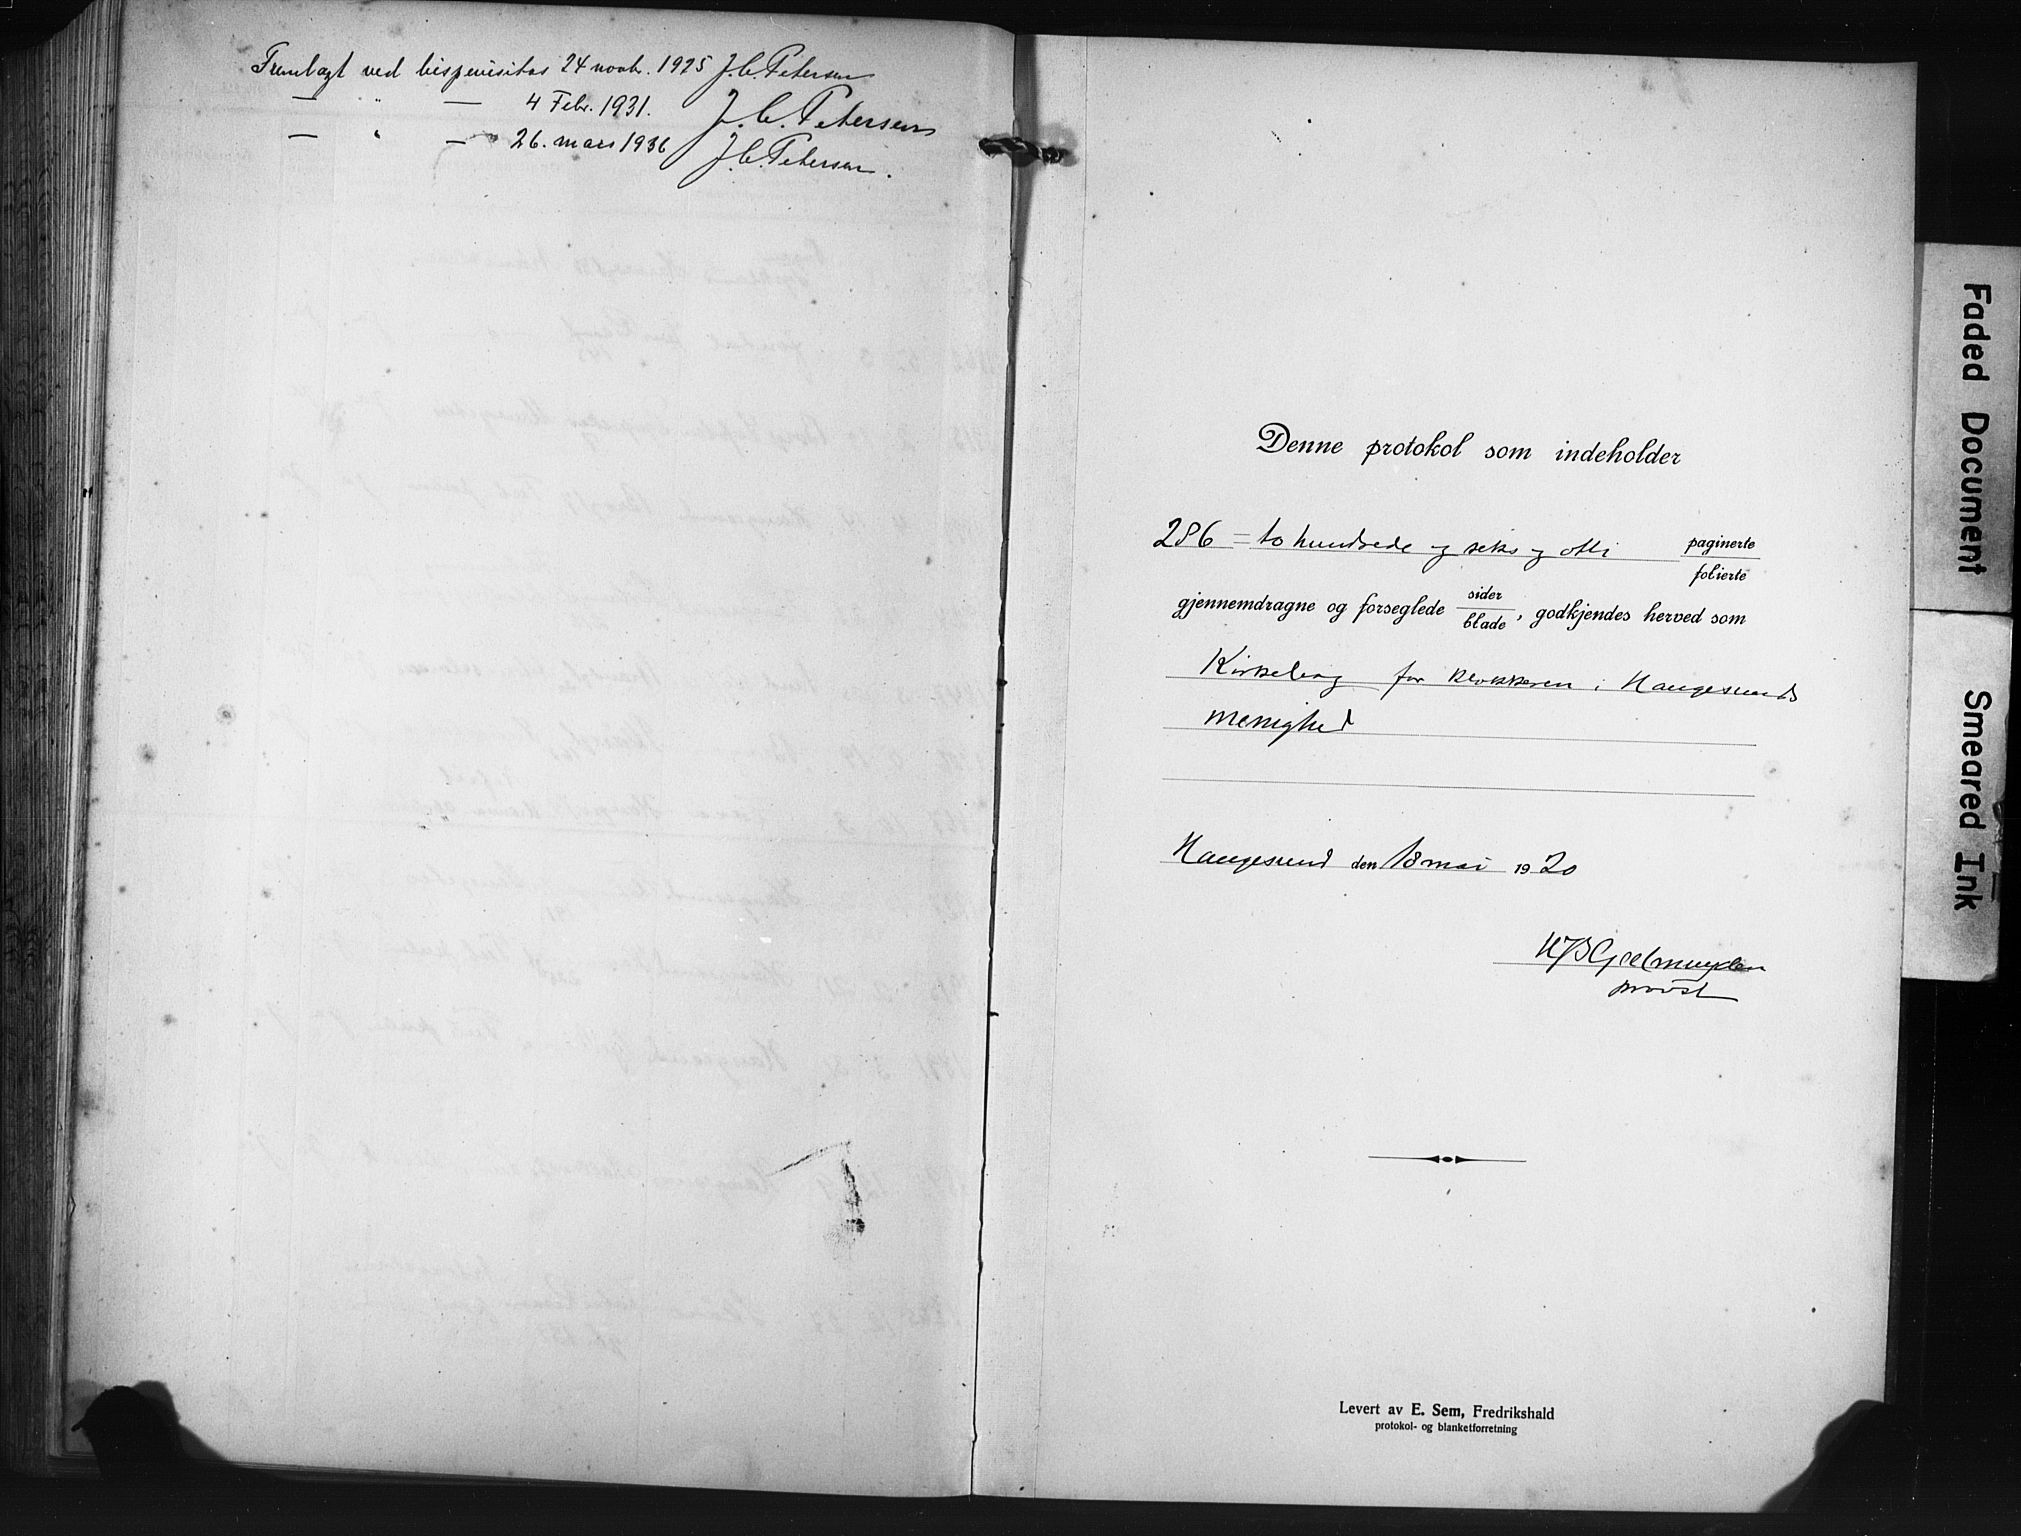 Fremlagt ved bispevisitas 24 novbr. 1925 J. C. Petersen
— " — 4 Febr. 1931. J. C. Petersen
— " — 26. mars 1936 J. C. Petersen.
Denne protokol som indeholder
286 = to hundrede og seks og otti paginerte
folierte
gjennemdragne og forseglede sider
blade, godkjendes herved som
Kirkebog for klokkeren i Haugesunds
menighed
Haugesund den 18 mai 1920
Gjelmuyden
provst
Levert av E. Sem, Fredrikshald
protokol- og blanketforretning
Faded Document
Smeared Ink